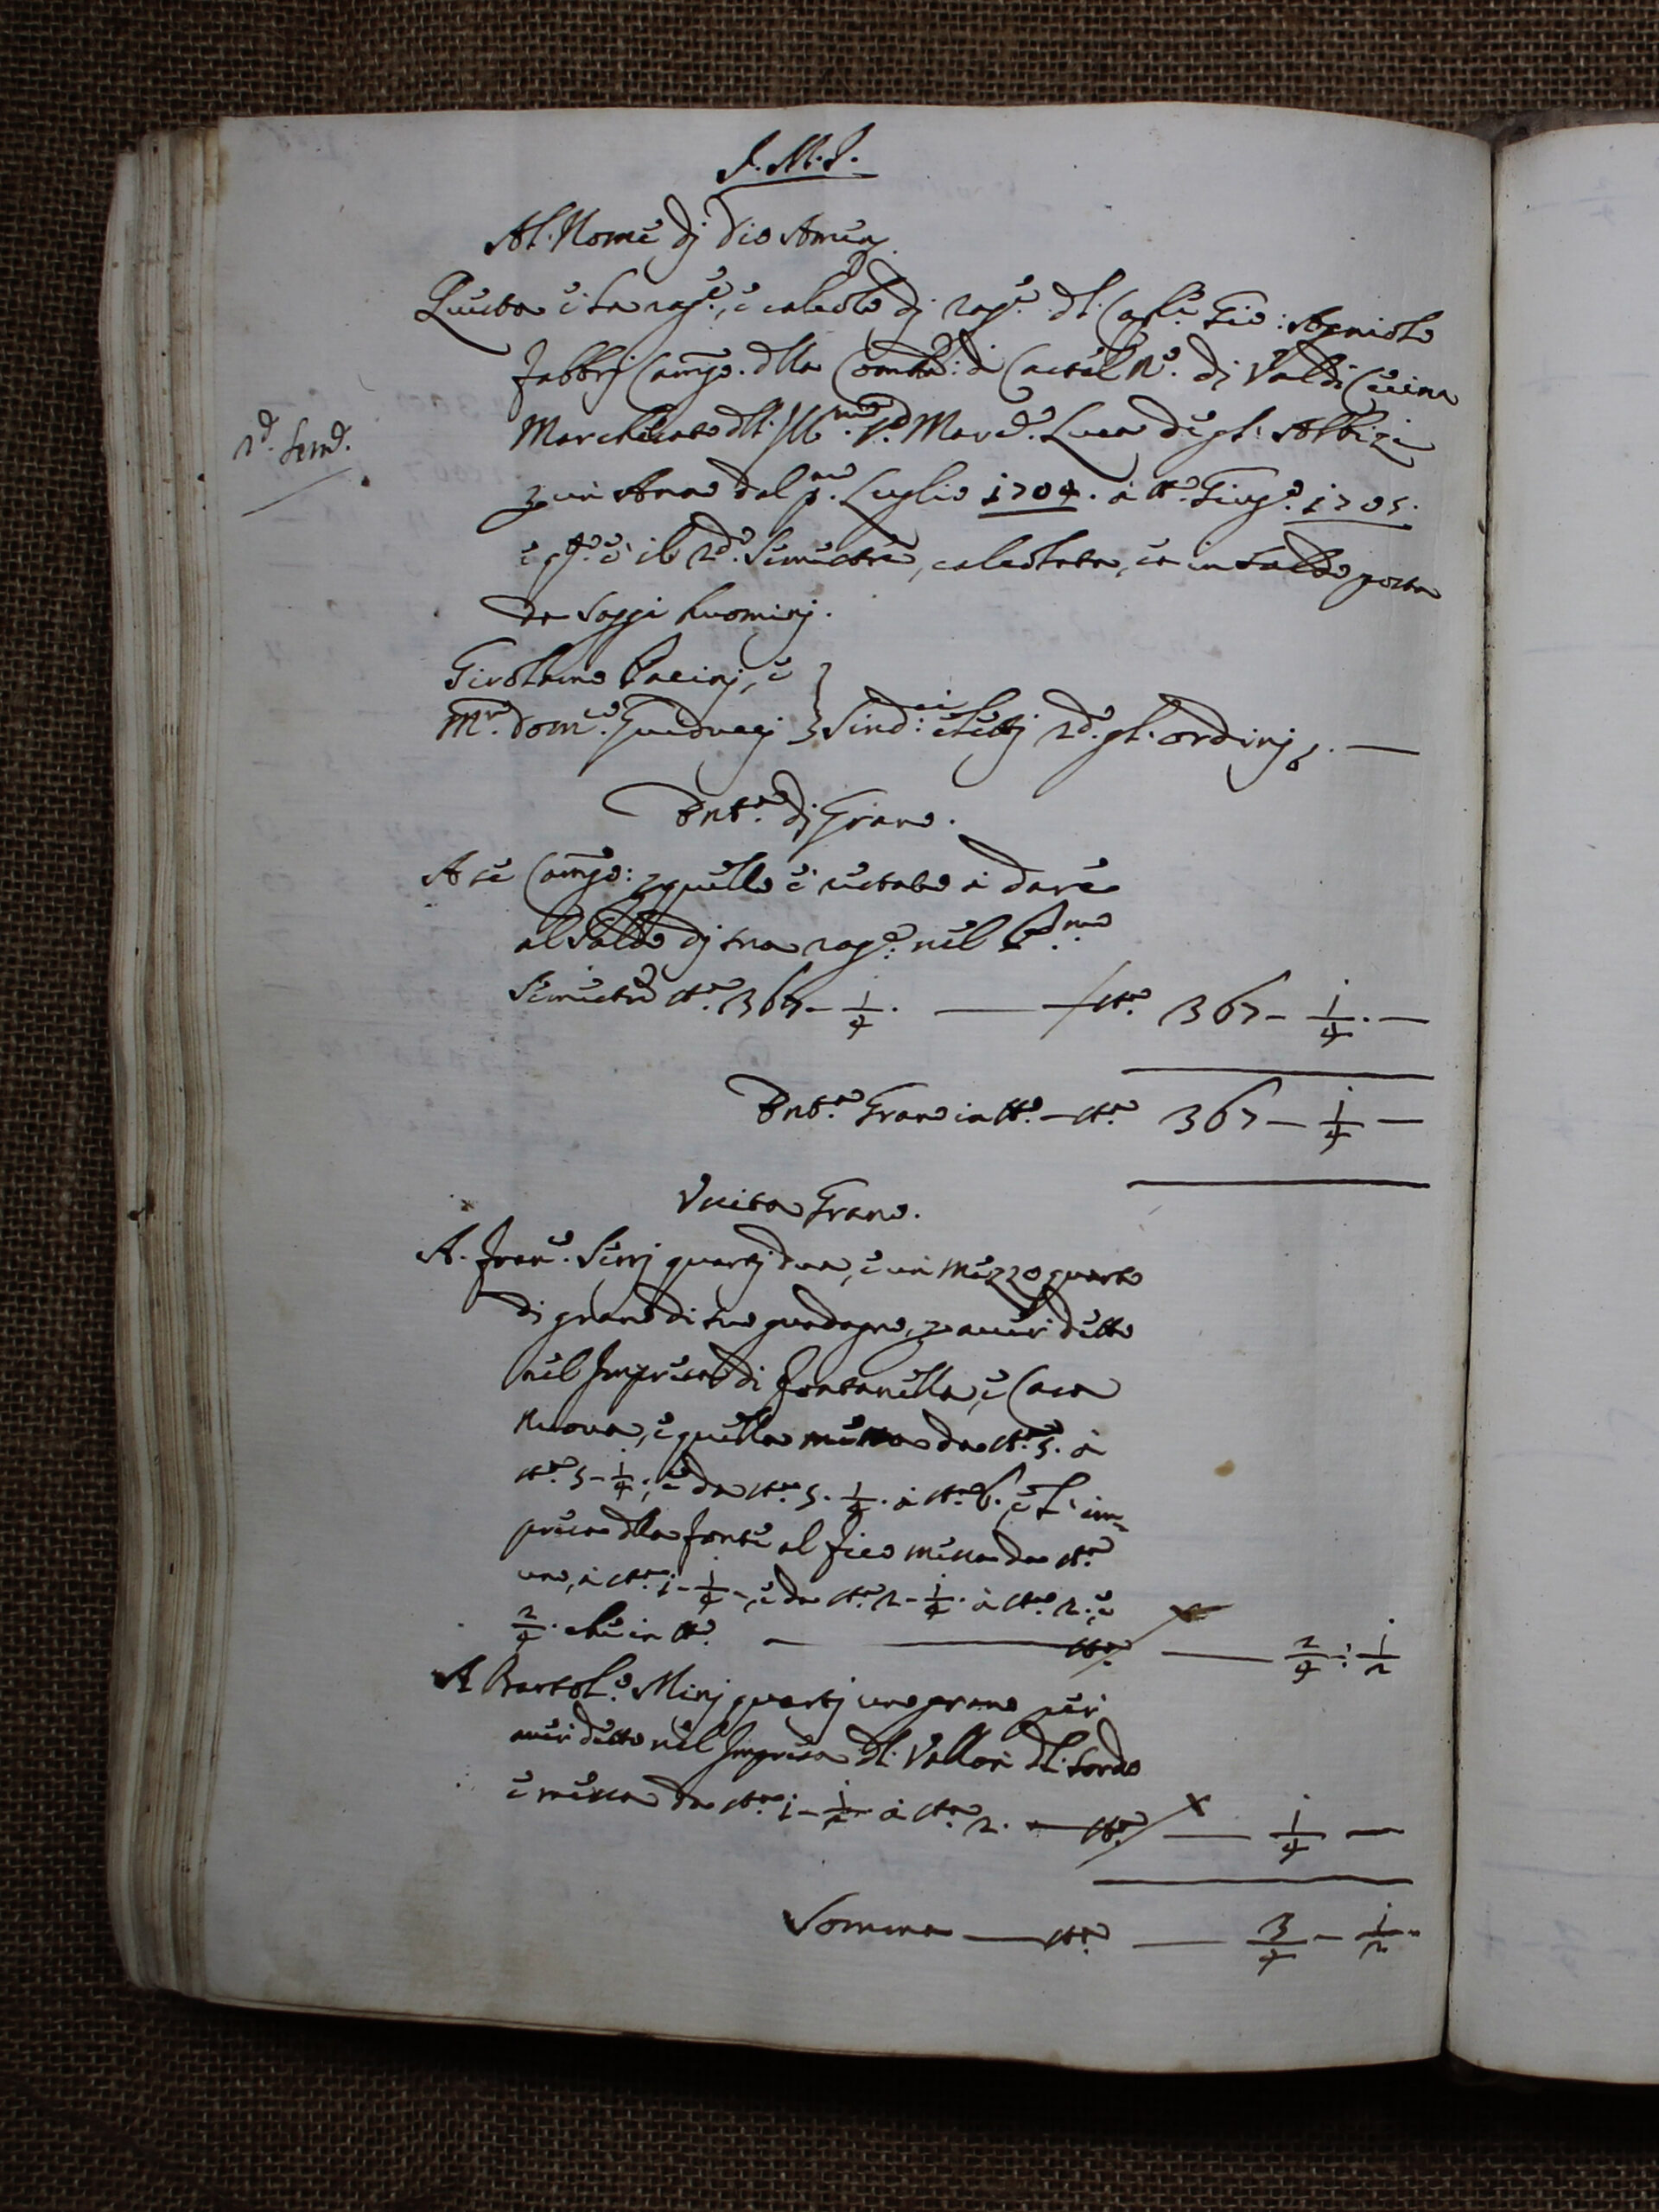 J. M. J.
Al. Nome dj Dio Amen.
Questa è la rag.e, e calcolo dj rag.e dl. Cap.o Gio: Agniolo
Fabbrj Camg.o dlla Comtà: di Castel N.o di Val di Cecina
Marchesato dll. Ill.mo S. Marc. Luca Degl. Albizi
2.d Sem.
p un Anno dal p.mo Luglio 1704. à tt.o Giug.o 1705.
e p.o è il 2.do Semestre, calcolata, e in saldo posta
da saggi huominj.
Girolamo Pacinj, e
M.ro Dom.co Gueduccj } Sind.ci eletti 2.do gl. ordinj. —
Entr.a dj Grano.
A se Camg.o: p quello è restato à dare
al saldo dj sua rag.e nel P.mo
Semestre st.a 367 - 1/4. — st.a 367 - 1/4. —
Entr.a Grano in tt.o — st.a 367 - 1/4 —
Vscita Grano.
A. Fran.co Serrj quartj dua, e un mezzo quarto
di grano di suo guadagno, p auer detto
nel Impresa di Fontanella, e Casa
Nuova, e quella messa da st.a 5. à
st.a 5 - 1/4; e da st.a 5. 1/4. à st.a 6. e l' im=
presa dlla fonte al fico messa da st.a
uno, à st.a 1 - 1/4 -, e da st.a 2 - 1/4. à st.a 2. e
2/4. che in tt.o — st.a — 2/4: 1/2
A Bartol.o Minj quartj uno grano per
auer detto nel Impresa dl. Vallon dl. sordo
e messa da st.a 1 - 1/2 à st.a 2. — st.a — 1/4 —
Somma — st.a — 3/4 - 1/2.